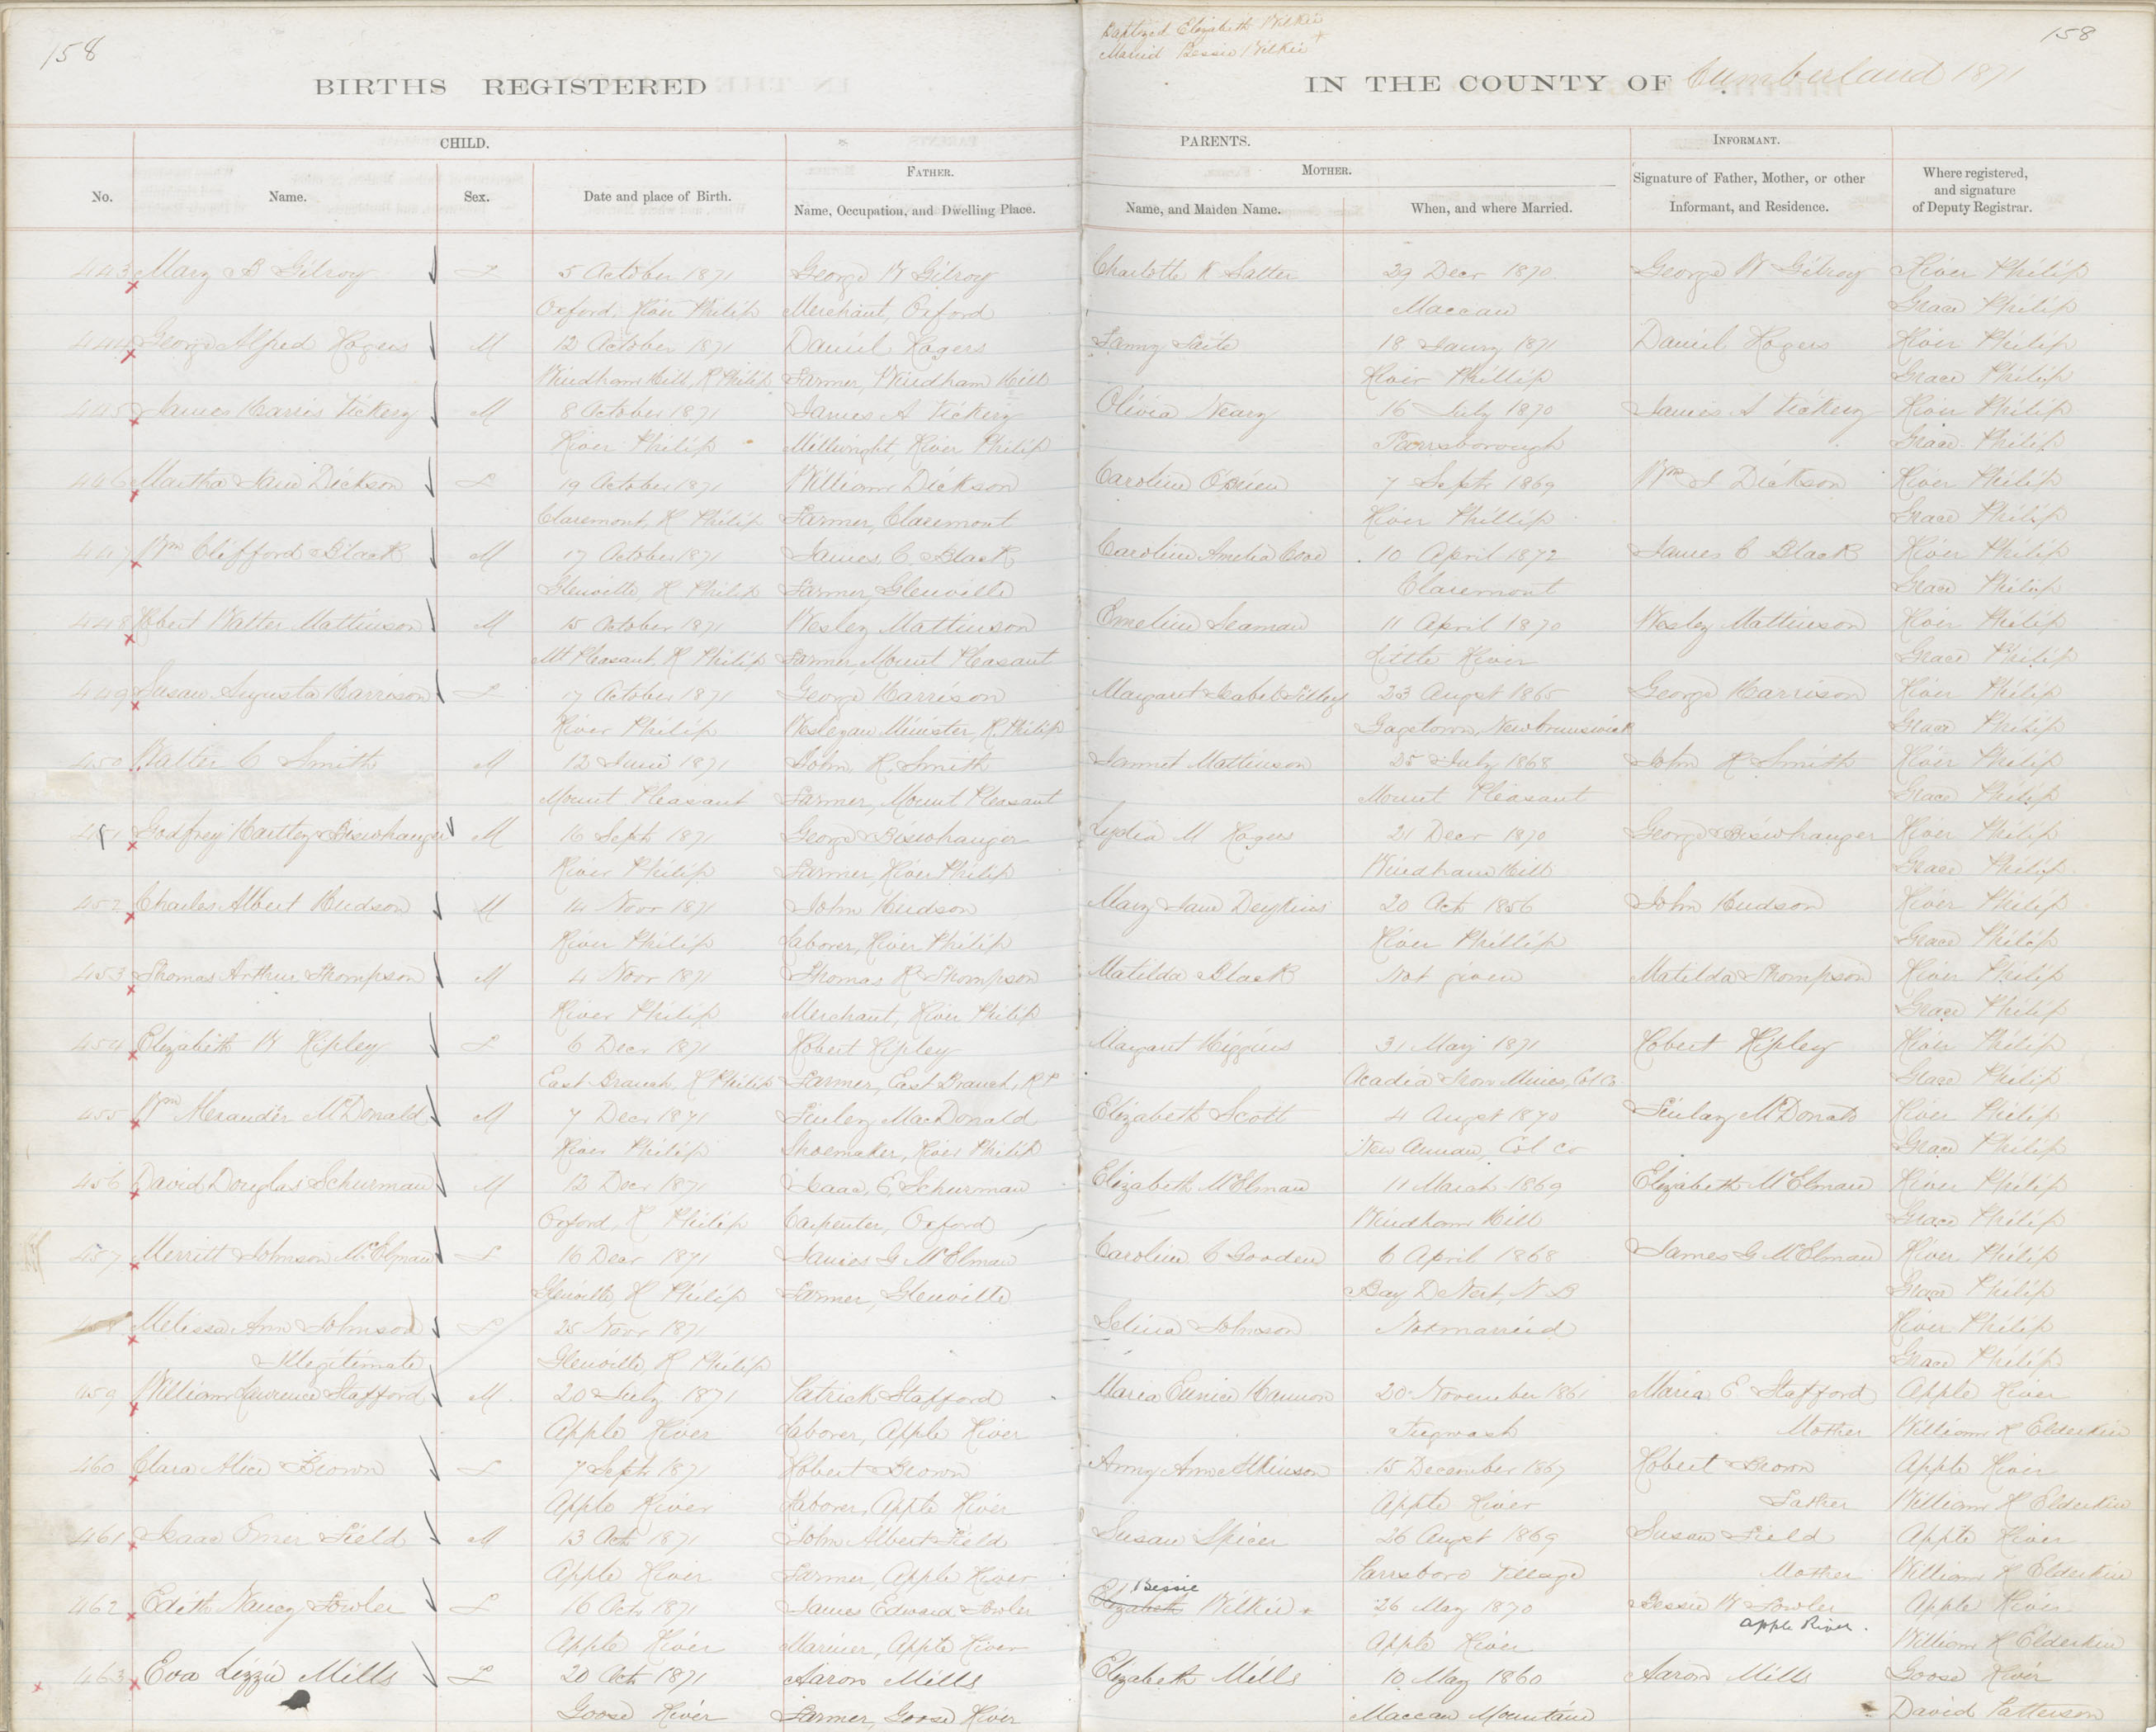 158
Baptized Elizabeth Wilkie
Married Bessie Wilkie +
158
BIRTHS REGISTERED IN THE COUNTY OF Cumberland 1871
CHILD. PARENTS. INFORMANT.
No. Name. Sex. Date and place of Birth. FATHER. Name, Occupation, and Dwelling Place. MOTHER. Name, and Maiden Name. When, and where Married. Signature of Father, Mother, or other Informant, and Residence. Where registered, and signature of Deputy Registrar.
443 Mary B Gilroy F 5 October 1871 George W Gilroy Charlotte K Salter 29 Decr 1870 George W Gilroy River Philip
Oxford, River Philip Merchant, Oxford Maccan Grace Philip
444 George Alfred Rogers M 12 October 1871 Daniel Rogers Fanny 18 Jany 1871 Daniel Rogers River Philip
Windham Hill, R Philip Farmer, Windham Hill River Phillip Grace Philip
445 James Harris Vickery M 8 October 1871 James A Vickery Olivia Neary 16 July 1870 James A Vickery River Philip
River Philip Millwright, River Philip Parrsborough Grace Philip
446 Martha Jane Dickson F 19 October 1871 William Dickson Caroline O'Brien 7 Septr 1869 Wm Dickson River Philip
Claremont, R Philip Farmer, Claremont River Phillip Grace Philip
447 Wm Clifford Black M 17 October 1871 James C. Black Caroline Amelia 10 April 1872 James C Black River Philip
Glenville, R Philip Farmer, Glenville Claremont Grace Philip
448 Robert Walter Mattinson M 15 October 1871 Wesley Mattinson Emeline Seaman 11 April 1870 Wesley Mattinson River Philip
Mt Pleasant, R Philip Farmer, Mount Pleasant Little River Grace Philip
449 Susan Augusta Harrison F 17 October 1871 George Harrison Margaret Isabel 23 Augst 1865 George Harrison River Philip
River Philip Wesleyan Minister, R. Philip Gagetown, Newbrunswick Grace Philip
450 Walter C Smith M 12 June 1871 John R. Smith Jannet Mattinson 25 July 1868 John R Smith River Philip
Mount Pleasant Farmer, Mount Pleasant Mount Pleasant Grace Philip
451 Godfrey Hartley Bisewhanger M 16 Septr 1871 George Bisewhanger Lydia M Rogers 21 Decr 1870 George Bisewhanger River Philip
River Philip Farmer, River Philip Windham Hill Grace Philip
452 Charles Albert Hudson M 14 Novr 1871 John Hudson Mary Jane Deykins 20 Octr 1856 John Hudson River Philip
River Philip Laborer, River Philip River Phillip Grace Philip
453 Thomas Arthur Thompson M 4 Novr 1871 Thomas R Thompson Matilda Black Not given Matilda Thompson River Philip
River Philip Merchant, River Philip Grace Philip
454 Elizabeth W Ripley F 6 Decr 1871 Robert Ripley Margaret Higgins 31 May 1871 Robert Ripley River Philip
East Branch, R Philip Farmer, East Branch, R P Acadia Iron Mines, Col Co Grace Philip
455 Wm Alexander McDonald M 7 Decr 1871 Finley MacDonald Elizabeth Scott 4 Augst 1870 Finlay McDonald River Philip
River Philip Shoemaker, River Philip New Annan, Col Co Grace Philip
456 David Douglas Schurman M 12 Decr 1871 Isaac E. Schurman Elizabeth McElman 11 March 1869 Elizabeth McElman River Philip
Oxford, R Philip Carpenter, Oxford Windham Hill Grace Philip
457 Merritt Johnson McElman F 16 Decr 1871 James G McElman Caroline C Gooden 6 April 1868 James G McElman River Philip
Glenville, R Philip Farmer, Glenville Bay D Vert, N B Grace Philip
458 Melissa Ann Johnson F 25 Novr 1871 Selina Johnson Not married River Philip
Illegitimate Glenville, R Philip Grace Philip
459 William Lawrence Stafford M 20 July 1871 Patrick Stafford Maria Eunice Hannon 20 November 1861 Maria E Stafford Apple River
Apple River Laborer, Apple River Pugwash Mother William R Elderkin
460 Clara Alice Brown F 7 Septr 1871 Robert Brown Anny Ann Atkinson 15 December 1867 Robert Brown Apple River
Apple River Laborer, Apple River Apple River Father William R Elderkin
461 Isaac Omer Field M 13 Octr 1871 John Albert Field Susan Spicer 26 Augst 1869 Susan Field Apple River
Apple River Farmer, Apple River Parrsboro Village Mother William R Elderkin
462 Edith Nancy Fowler F 16 Octr 1871 James Edward Fowler Elizabeth Bessie Wilkie + 26 May 1870 Bessie W Fowler Apple River
Apple River Mariner, Apple River Apple River Apple River. William R Elderkin
463 Eva Lizzie Mills F 20 Octr 1871 Aaron Mills Elizabeth Mills 10 May 1860 Aaron Mills Goose River
Goose River Farmer, Goose River Maccan Mountain David Patterson